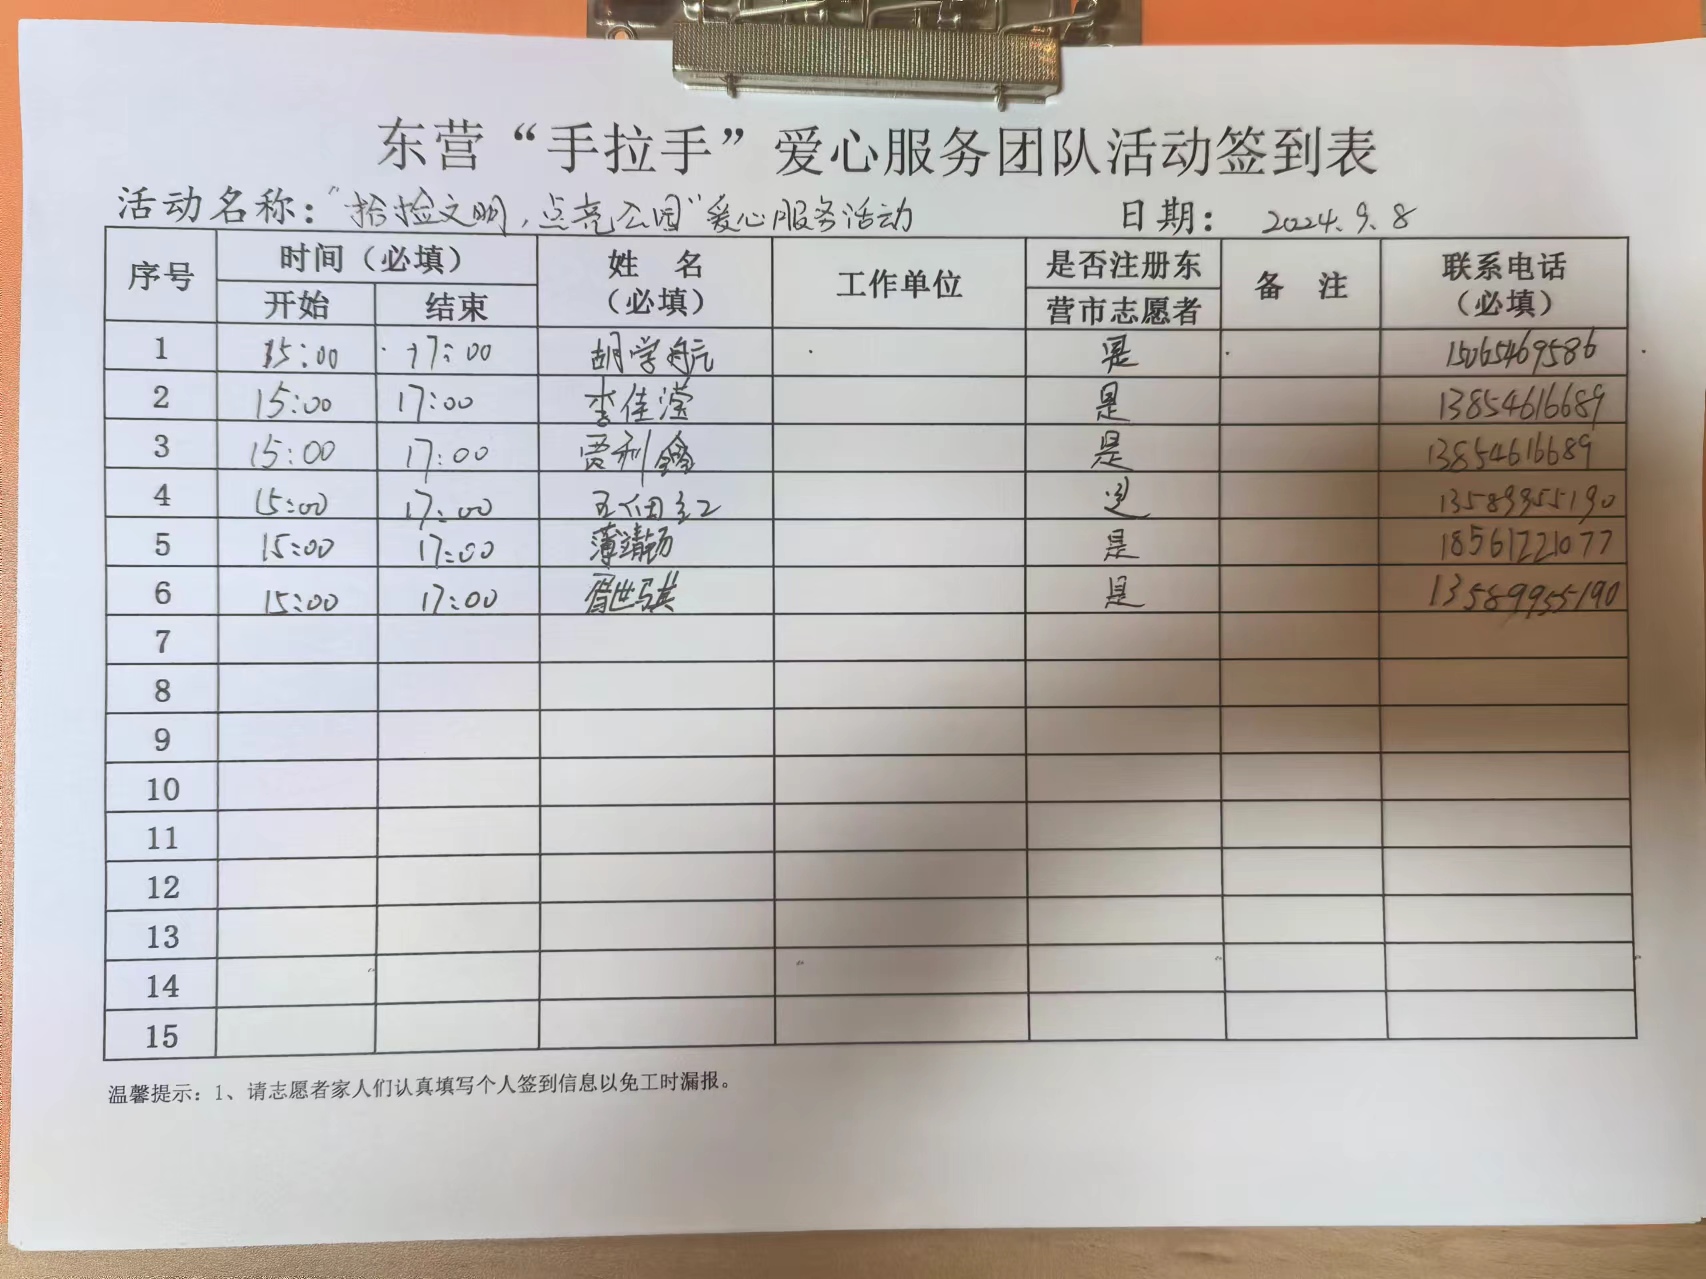 东营“手拉手”爱心服务团队活动签到表
活动名称：“拾捡文明，点亮公园”爱心服务活动 日期：2024.9.8
序号 时间（必填） 姓 名（必填） 工作单位 是否注册东营市志愿者 备 注 联系电话（必填）
开始 结束
1 15:00 17:00 胡学航 是 15065469586
2 15:00 17:00 李佳滢 是 13854616689
3 15:00 17:00 贾利鑫 是 13854616689
4 15:00 17:00 王佃红 是 13589955190
5 15:00 17:00 薄靖畅 是 18561221077
6 15:00 17:00 世骐 是 13589955190
7
8
9
10
11
12
13
14
15
温馨提示：1、请志愿者家人们认真填写个人签到信息以免工时漏报。